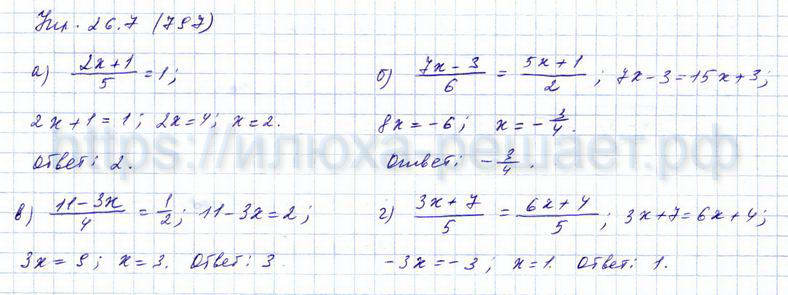 Упр. 26.7 (797)
а) (2x+1)/5 = 1;
2x+1=1; 2x=4; x=2.
Ответ: 2.
б) (7x-3)/6 = (5x+1)/2; 7x-3=15x+3;
8x=-6; x=-3/4.
Ответ: -3/4.
в) (11-3x)/4 = 1/2; 11-3x=2;
3x=9; x=3. Ответ: 3.
г) (3x+7)/5 = (6x+4)/5; 3x+7=6x+4;
-3x=-3; x=1. Ответ: 1.
https://илюха-решает.рф